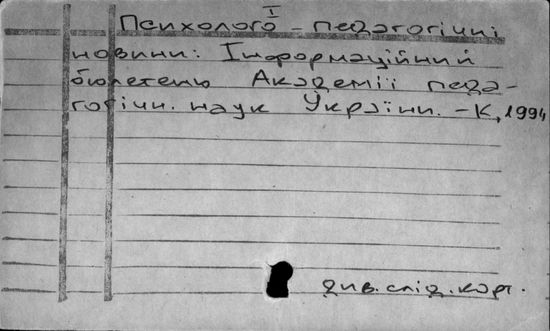 I
Психолого-педагогічні
новини: Інформаційний
бюлетень Академії педа-
гогічн. наук України. - К, 1994
див. слід. карт.